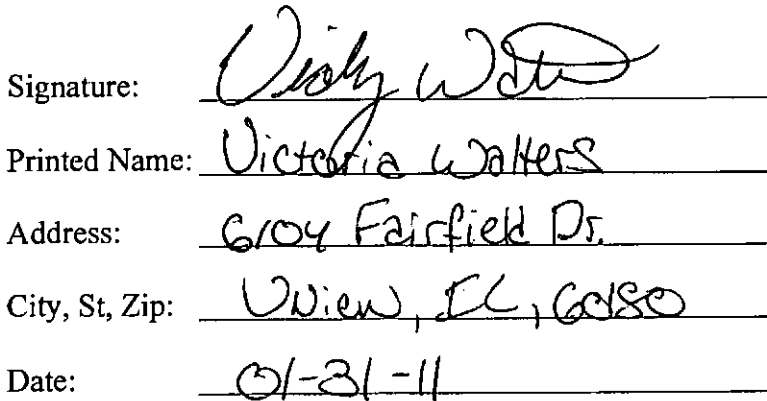 Signature: Vicky Walters
Printed Name: Victoria Walters
Address: 6104 Fairfield Dr.
City, St, Zip: Union, IL, 60180
Date: 01-31-11